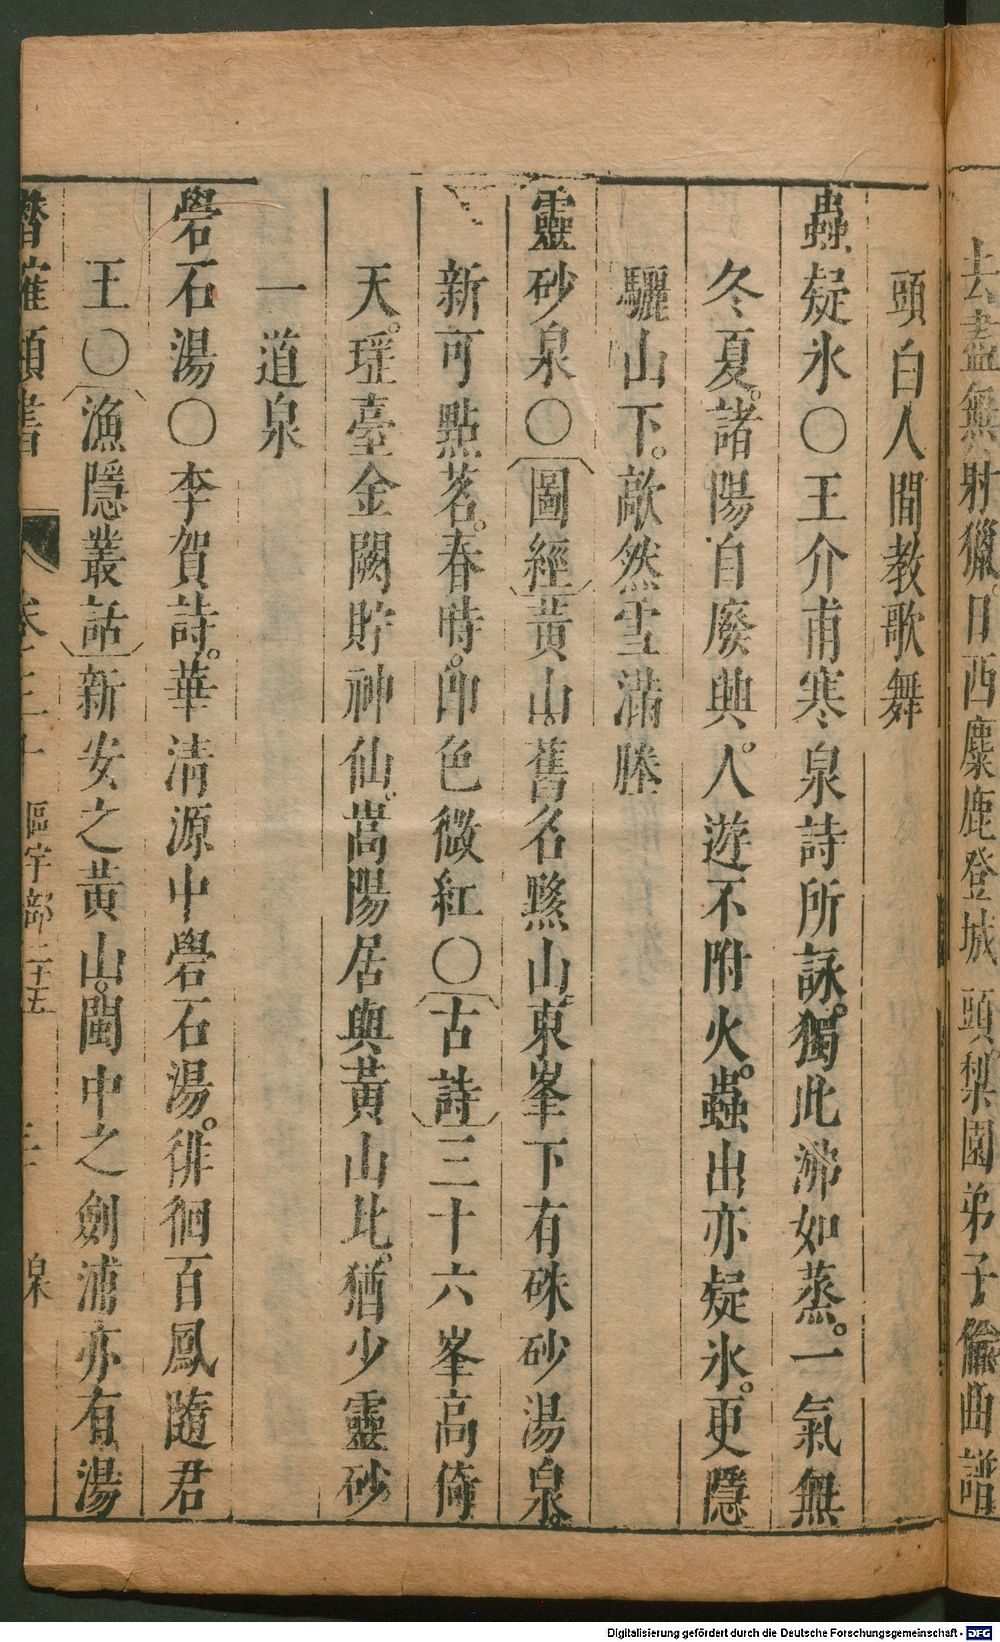 去盡無射獵日西麋鹿登城頭梨園弟子偸曲譜
頭白人間教歌舞
蟲疑氷〇王介甫寒泉詩所詠獨此沸如蒸一氣無
冬夏諸陽自廢興人遊不附火蟲出亦疑氷更隱
驪山下歊然雪滿塍
靈砂泉〇圖經黃山舊名黟山東峯下有硃砂湯泉
新可點茗春時卽色微紅〇古詩三十六峯高倚
天瑤臺金闕貯神仙嵩陽居與黃山比猶少靈砂
一道泉
礐石湯〇李賀詩華清源中礐石湯徘徊百鳳隨君
王〇漁隱叢話新安之黃山閩中之劍浦亦有湯
潛確類書 卷三十 區宇部二十五 三 泉
Digitalisierung gefördert durch die Deutsche Forschungsgemeinschaft - DFG